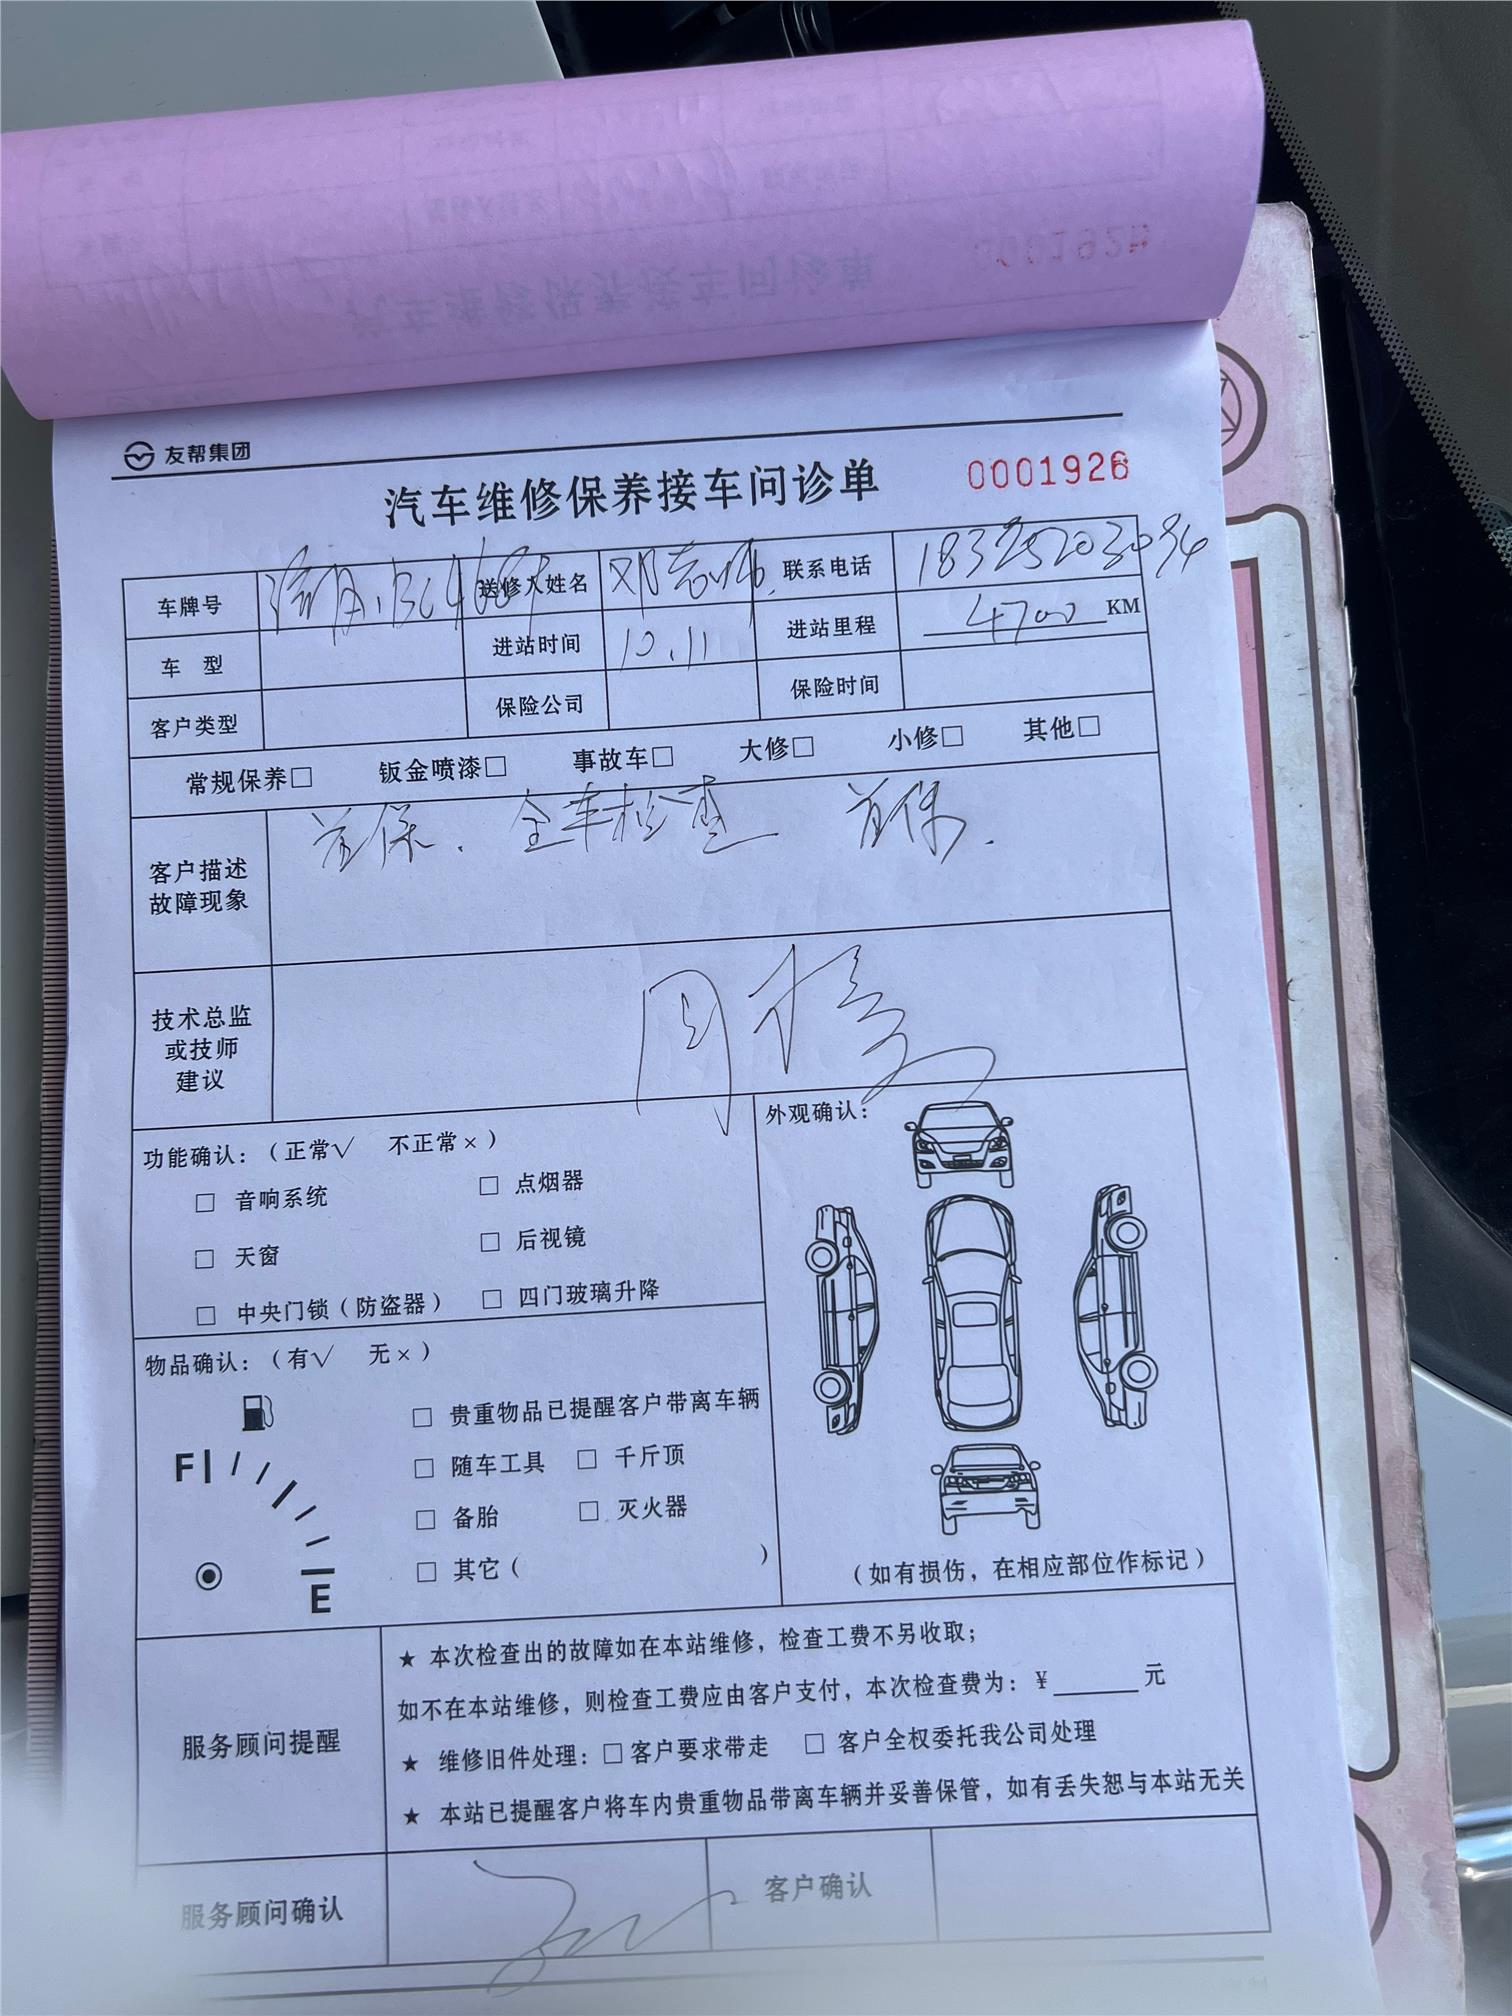 友帮集团
汽车维修保养接车问诊单 0001926
车牌号 送修人姓名 联系电话
车 型 进站时间 10.11 进站里程 4700 KM
客户类型 保险公司 保险时间
常规保养□ 钣金喷漆□ 事故车□ 大修□ 小修□ 其他□
客户描述
故障现象
首保. 全车检查 首保.
技术总监
或技师
建议
功能确认：（正常√ 不正常×）
□ 音响系统 □ 点烟器
□ 天窗 □ 后视镜
□ 中央门锁（防盗器） □ 四门玻璃升降
外观确认：
（如有损伤，在相应部位作标记）
物品确认：（有√ 无×）
F
E
□ 贵重物品已提醒客户带离车辆
□ 随车工具 □ 千斤顶
□ 备胎 □ 灭火器
□ 其它（ ）
服务顾问提醒
★ 本次检查出的故障如在本站维修，检查工费不另收取；
如不在本站维修，则检查工费应由客户支付，本次检查费为：¥______元
★ 维修旧件处理：□客户要求带走 □ 客户全权委托我公司处理
★ 本站已提醒客户将车内贵重物品带离车辆并妥善保管，如有丢失恕与本站无关
服务顾问确认 客户确认